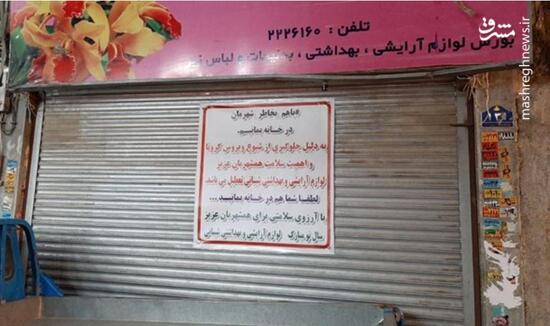 تلفن : ۲۲۲۶۱۶۰
بورس لوازم آرایشی ، بهداشتی ، بدلیجات و لباس زیر
#باهم بخاطر شهرمان
در خانه بمانیم.
به دلیل جلوگیری از شیوع ویروس کرونا
و اهمیت سلامت همشهریان عزیز
لوازم آرایشی و بهداشتی شبانی تعطیل می باشد.
لطفا شما هم در خانه بمانید...
با آرزوی سلامتی برای همشهریان عزیز
سال نو مبارک لوازم آرایشی و بهداشتی شبانی
مشرق
mashreghnews.ir